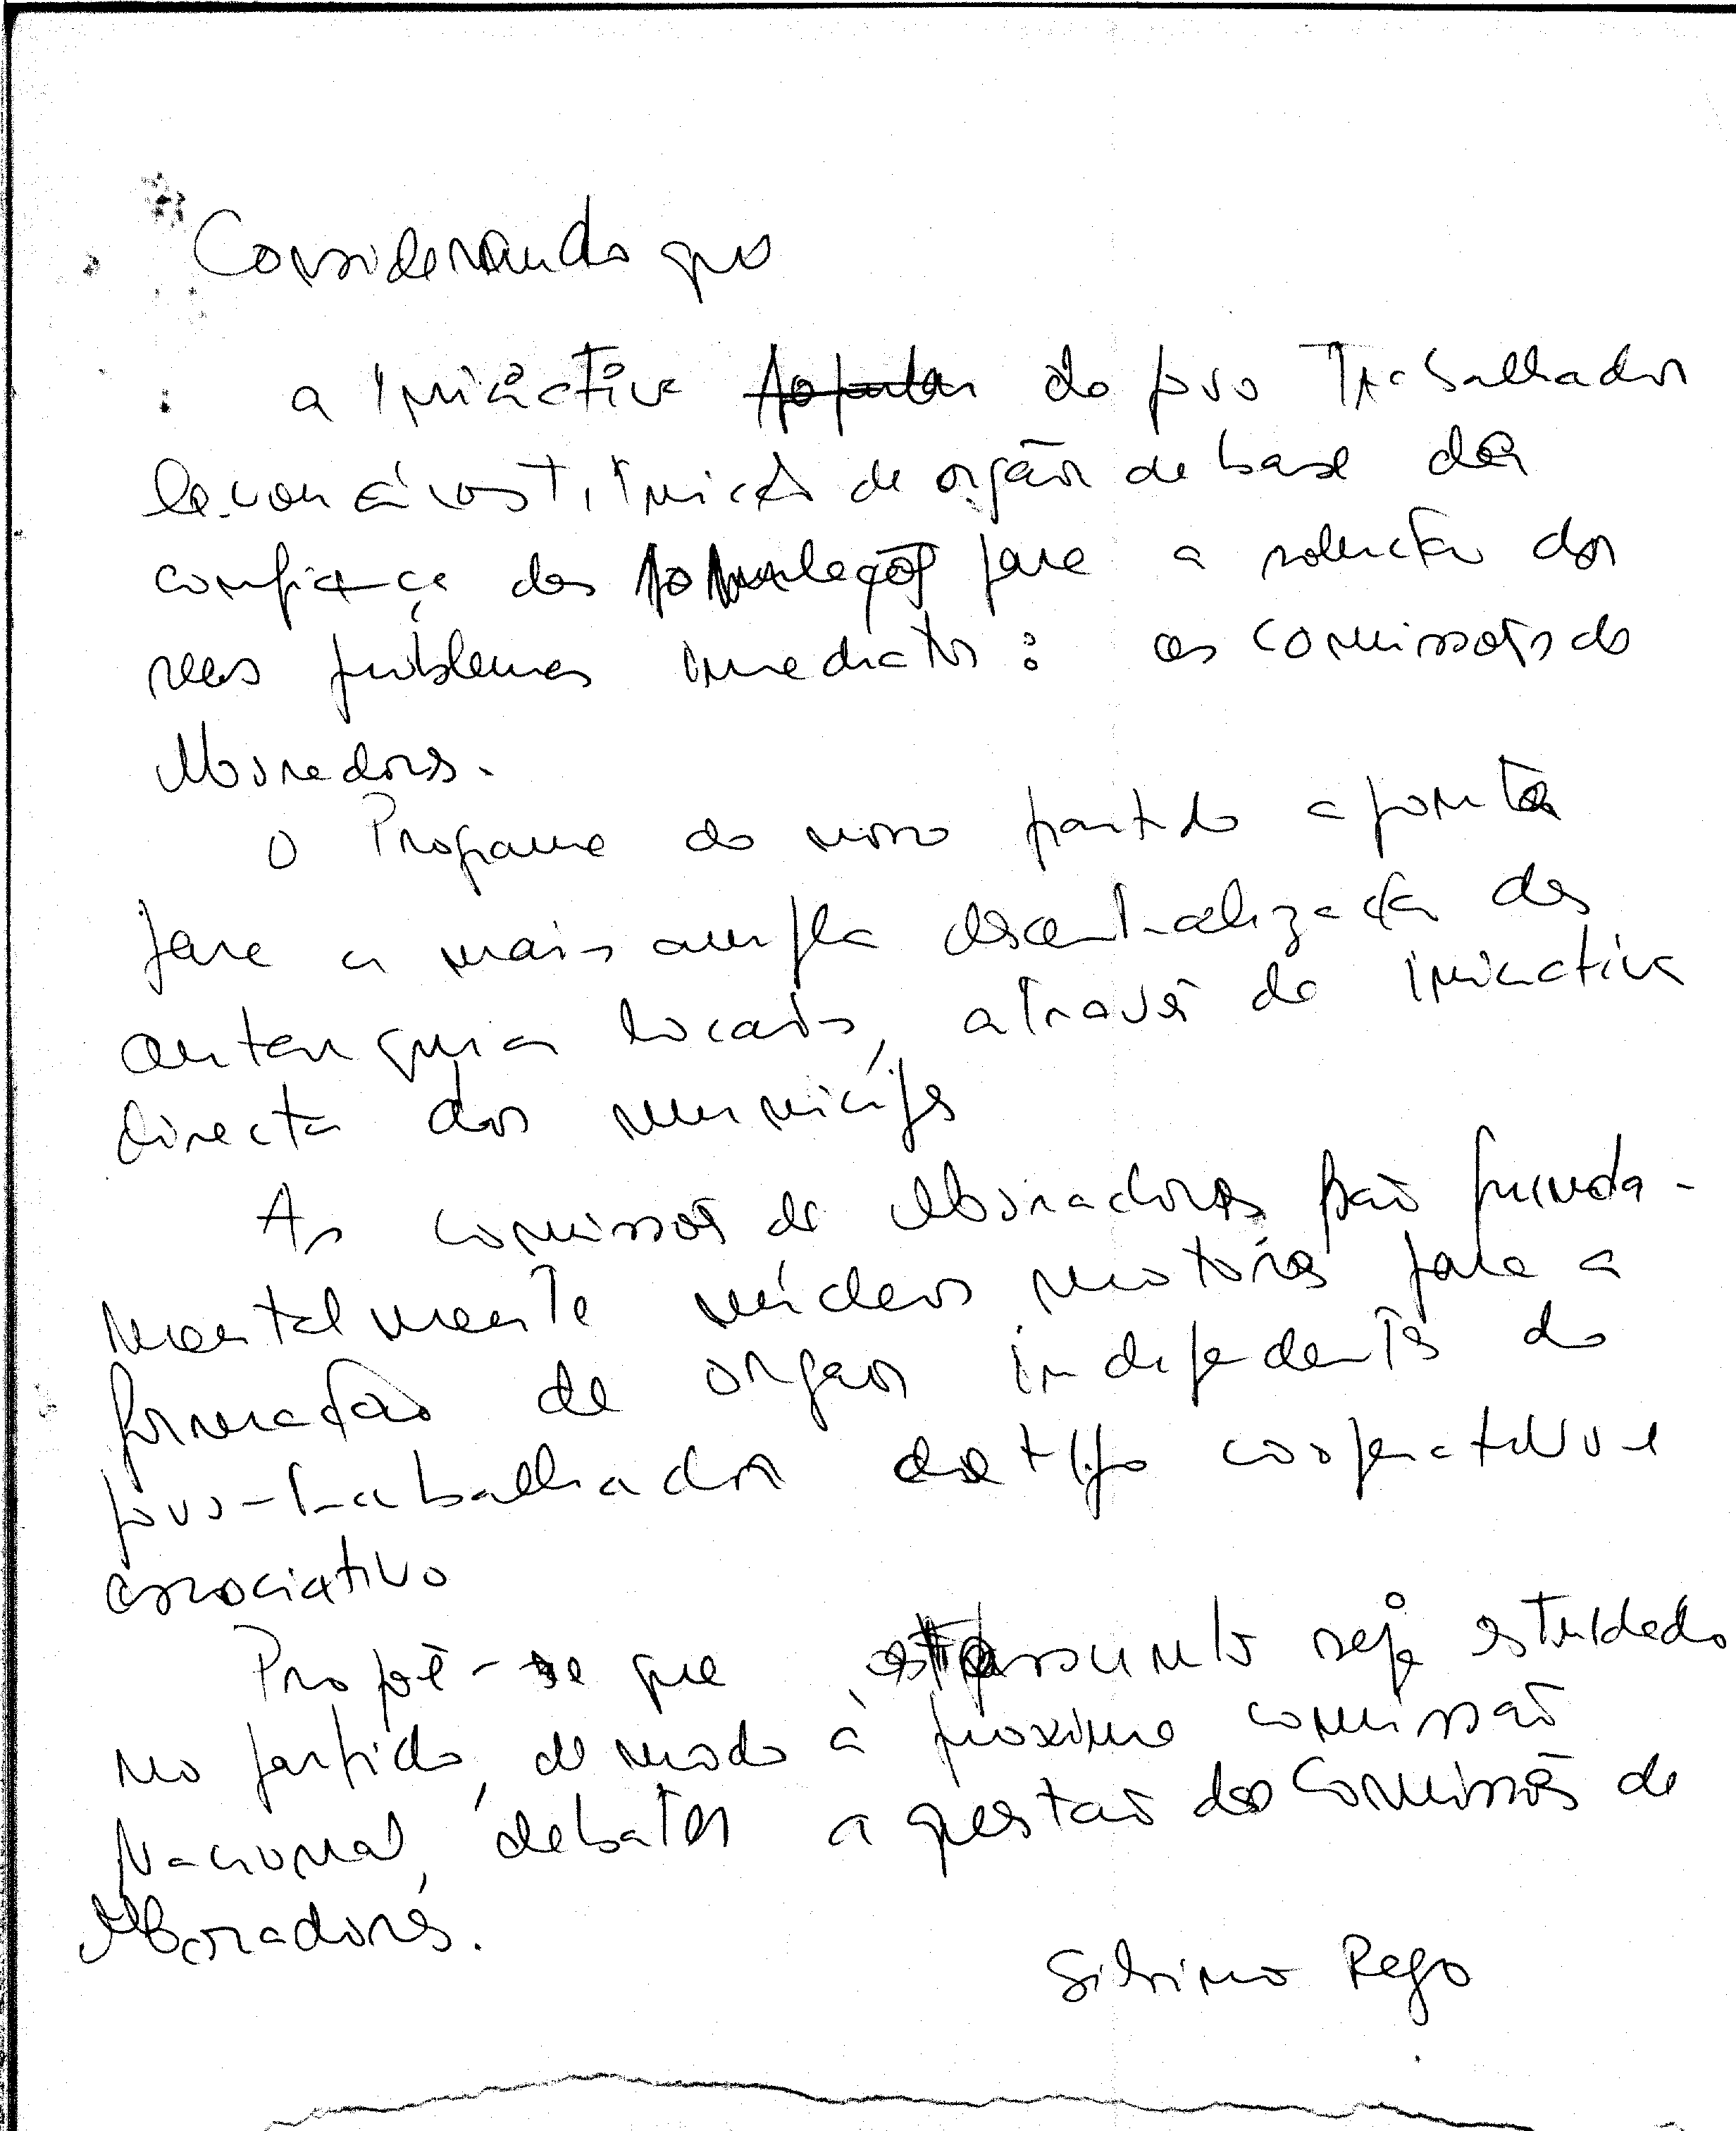 Considerando que
a iniciativa do povo Trabalhador
levou à constituição de orgãos de base da
confiança das populações para a solução dos
seus problemas imediatos: as comissões de
Moradores.
O Programa do nosso partido aponta
para a mais ampla descentralização das
autarquias locais, através da iniciativa
directa dos munícipes
As comissões de Moradores são funda-
mentalmente núcleos motores para a
formação de orgãos independentes do
povo-trabalhador de tipo cooperativo e
associativo
Propõe-se que este assunto seja estudado
no partido, de modo à proxima comissão
Nacional, debater a questão das Comissões de
Moradores.
Silvino Rego